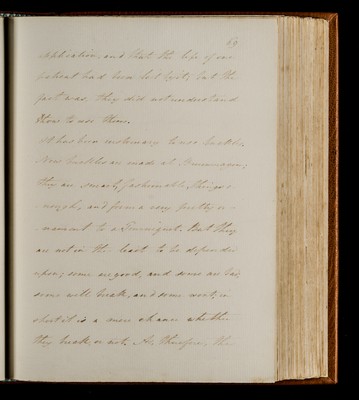 69
application, and that the life of one
patient had been lost by it; but the
fact was, they did not understand
how to use them.
It has been customary to use buckles.
Now buckles are made at Birmingham;
they are smart, fashionable things
enough, and form a very pretty or-
nament to a Tourniquet. But they
are not in the least to be depended
upon; some are good, and some are bad,
some will break, and some wont; in
short it is a mere chance whether
they break or not. As, therefore, the